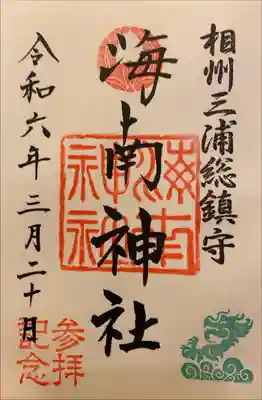 相州三浦総鎮守
海南神社
令和六年三月二十日
参拝
記念